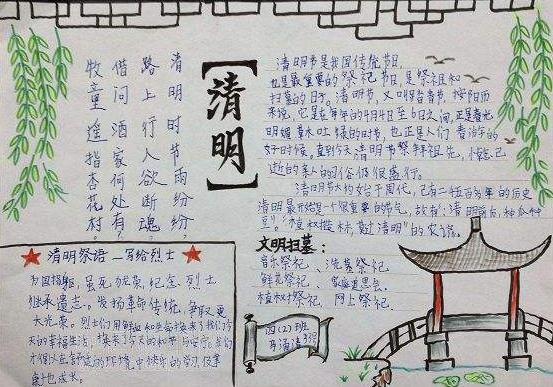 清明时节雨纷纷,
路上行人欲断魂。
借问酒家何处有?
牧童遥指杏花村
【清明】
清明节是我国传统节日,
也是最重要的祭祀节日,是祭祖和
扫墓的日子。清明节,又叫踏青节,按阳历
来说,它是在每年的4月4日至6日之间,正是春光
明媚草木吐绿的时节,也正是人们春游的
好时候,直到今天清明节祭拜祖先,悼念已
逝的亲人的习俗仍很盛行。
清明节大约始于周代,已有二千五百多年的历史
清明最开始是一个很重要的节气,故有:"清明前后,种瓜种
豆。""植树造林,莫过清明"的农谚。
文明扫墓:
音乐祭祀、洗墓祭祀
鲜花祭祀、家庭追思会
植树祭祀、网上祭祀
四(2)班
清明祭语—写给烈士
为国捐躯,虽死犹荣,纪念烈士
继承遗志。发扬革命传统,争取更
大光荣。烈士们用鲜血和生命换来了我们今
天的幸福生活,换来了今天的和平与安宁。我们
才得以在舒适的环境中快乐的学习,健康